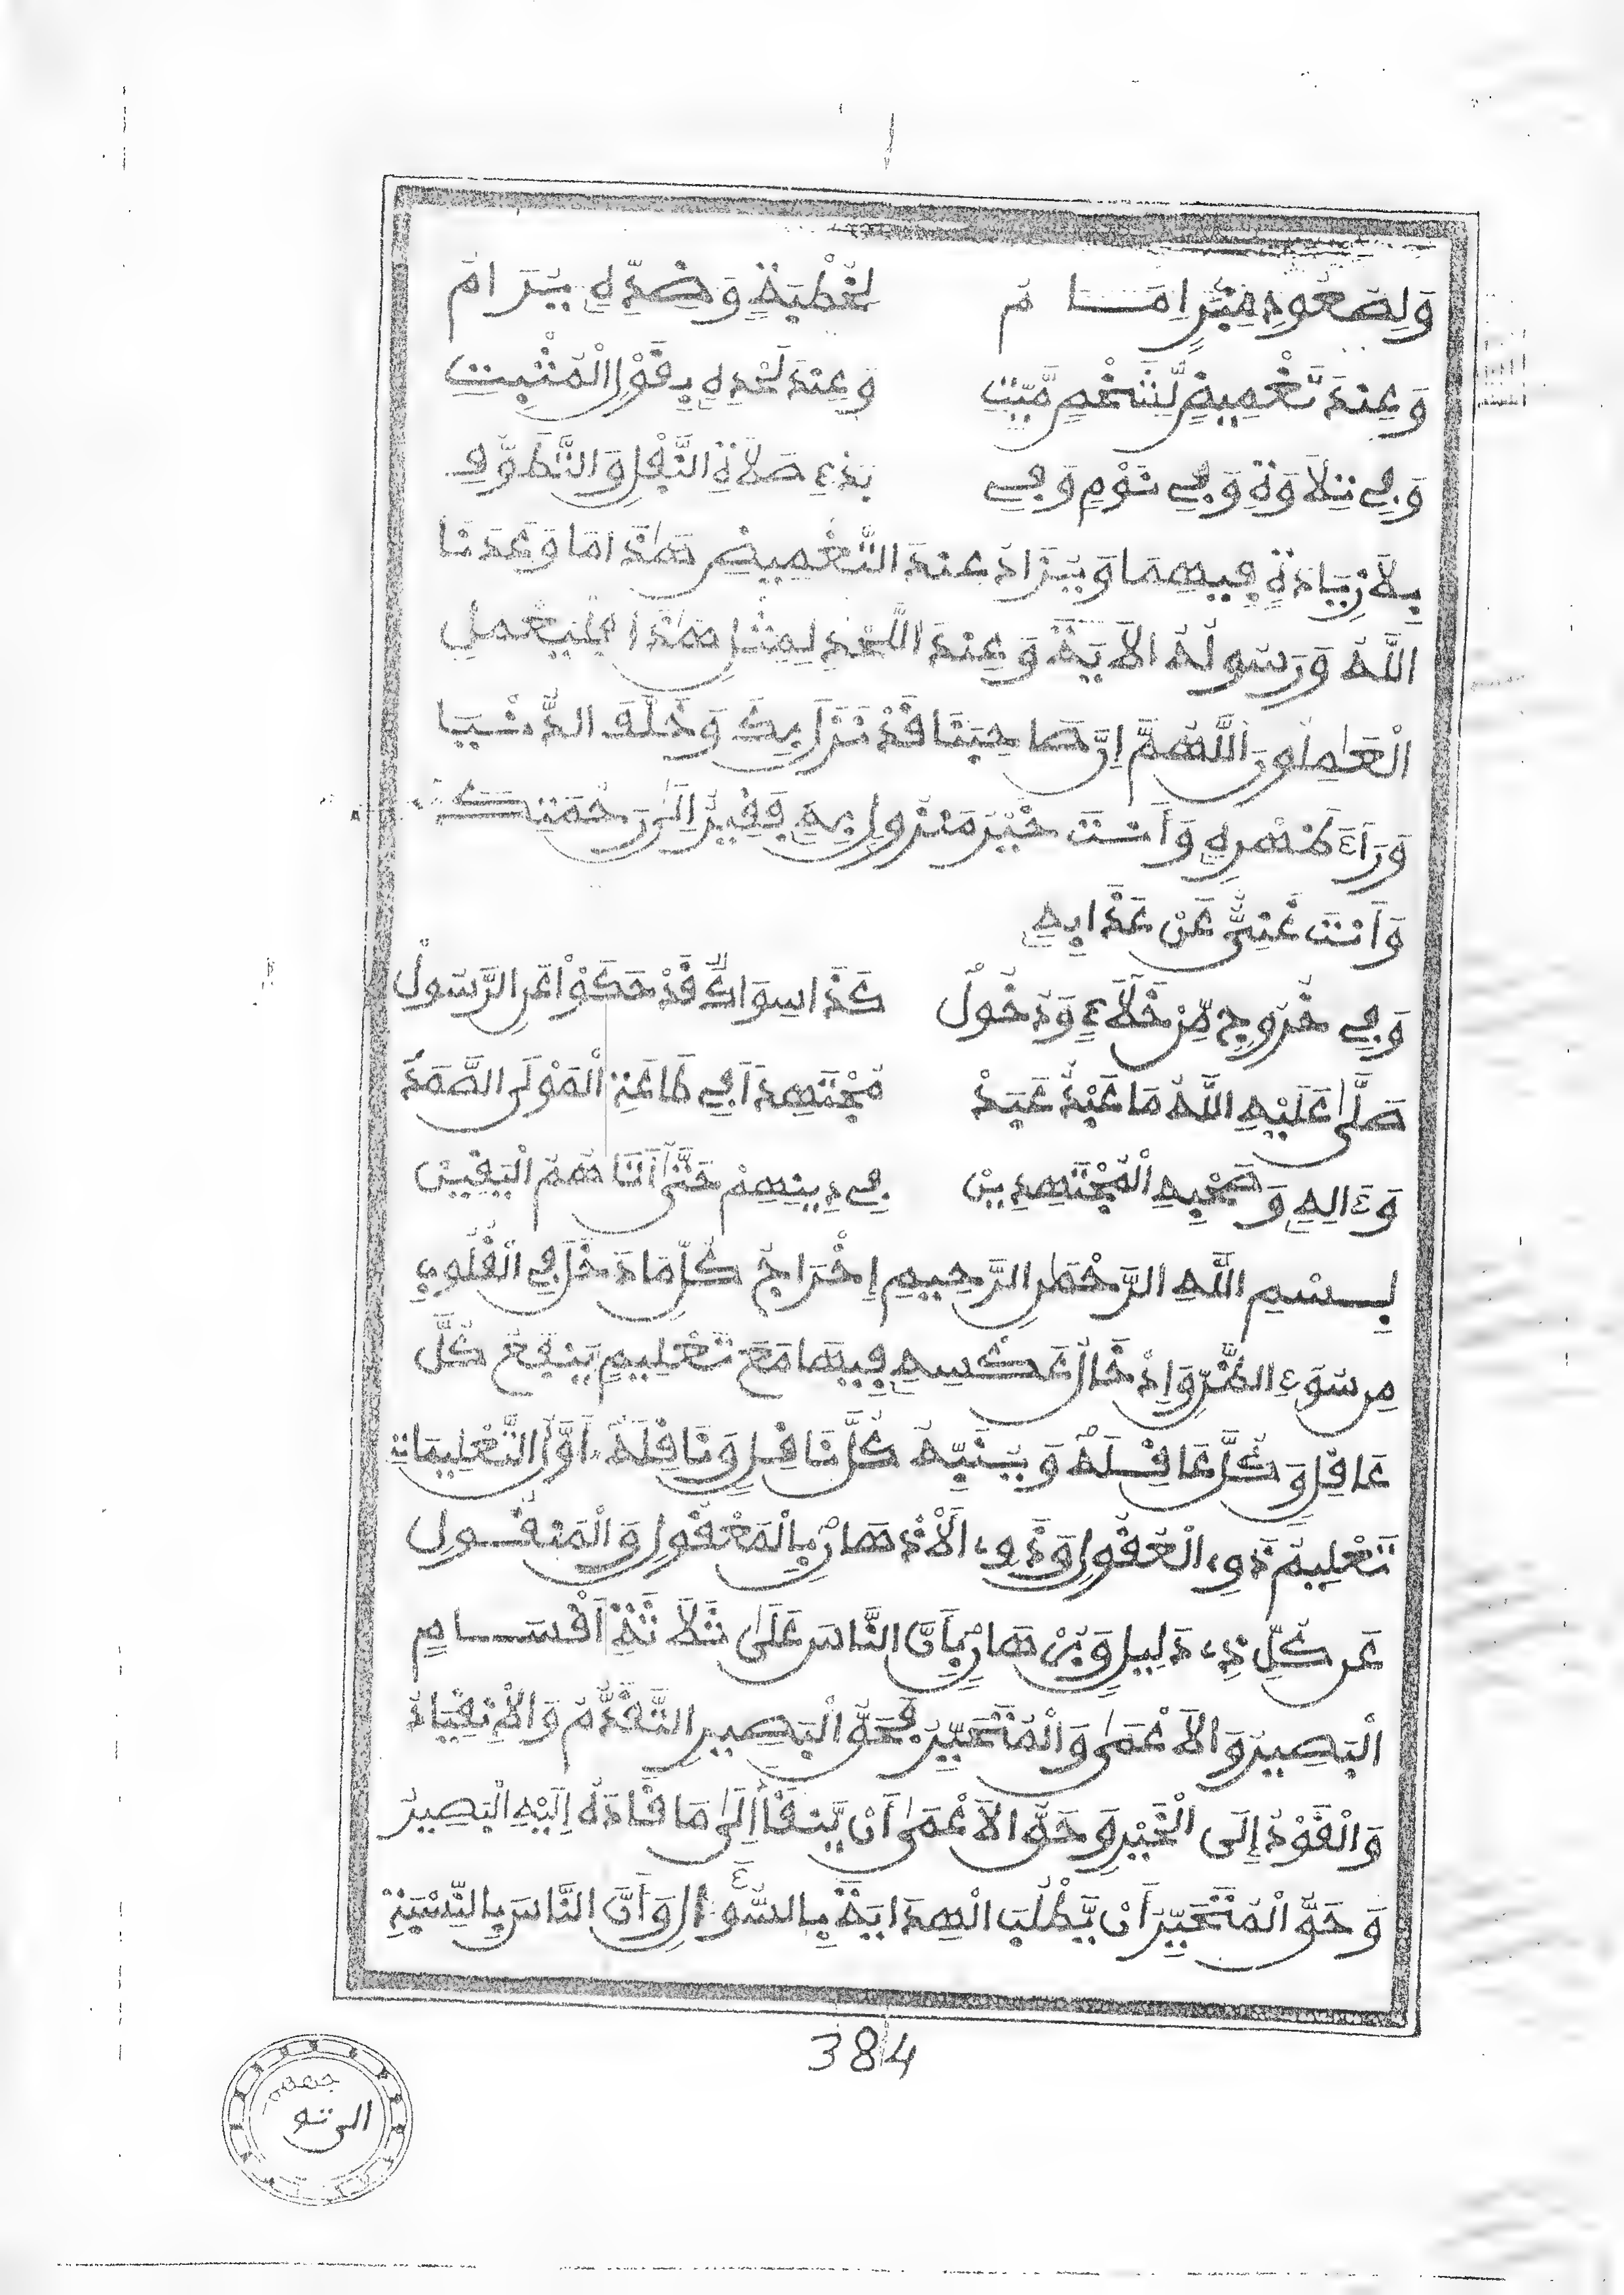 وَلِصُعُودِ مِنْبَرٍ اِمَـــا مُ لِخُطْبَةٍ وَضِدِّهِ يُـرَامُ
وَعِندَ تَغْمِيضٍ لِّشَخْصٍ مَّيِّتِ وَعِنْدَ لَحْدِهِ بِقَوْلِ الْمُثْبِتِ
وَفِي تِلَاوَةٍ وَفِي نَوْمٍ وَفِي بَدْءِ صَلَاةِ النَّفْلِ وَالتَّطَوُّفِ
بِلَا زِيَادَةٍ فِيهِمَا وَيُزَادُ عِندَ التَّغْمِيضِ هَٰذَا مَا وَعَدَنَا
اللَّهُ وَرَسُولُهُ الآيَةَ وَعِنْدَ اللَّحْدِ لِمِثْلِ هَٰذَا فَلْيَعْمَلِ
الْعَٰمِلُونَ اللَّهُمَّ إِنَّ صَاحِبَنَا قَدْ نَزَلَ بِكَ وَخَلَّفَ الدُّنْـيَا
وَرَاءَ ظَهْرِهِ وَأَنـتَ خَيْرُ مَنْزُولٍ بِهِ فَقِيرٌ إِلَىٰ رَحْمَتِكَ
وَأَنتَ غَنِيٌّ عَنْ عَذَابِهِ
وَفِي خُرُوجٍ مِّنْ خَلَاءٍ وَدُخُولْ كَذَا سِوَاكٌ قَدْ حَكَوْا عَنِ الرَّسُولْ
صَلَّىٰ عَلَيْهِ اللَّهُ مَا عَبْدٌ عَبَدْ مُجْتَهِدًا فِي طَاعَةِ الْمَوْلَى الصَّمَدْ
وَءَالِهِ وَصَحْبِهِ الْمُجْتَهِدِينْ فِي دِينِهِمْ حَتَّىٰ أَتَاهُمُ الْيَقِينْ
بِـسْمِ اللَّهِ الرَّحْمَٰنِ الرَّحِيمِ إِخْرَاجُ كُلِّ مَا دَخَلَ فِي الْقُلُوبِ
مِن سُوءِ الظَّنِّ وَإِدْخَالُ عَكْسِهِ فِيهَا مَعَ تَعْلِيمٍ يَنفَعُ كُلَّ
عَاقِلٍ وَكُلَّ عَاقِـلَةٍ وَيُـنَبِّهُ كُلَّ نَاقِلٍ وَنَاقِلَةٍ أَوَّلُ التَّعْلِيمَاتِ
تَعْلِيمُ ذَوِي الْعُقُولِ وَذَوِي الْأَذْهَانِ بِالْمَعْقُولِ وَالْمَنقُـولِ
عَن كُلِّ ذِي دَلِيلٍ وَبُرْهَانٍ بِأَنَّ النَّاسَ عَلَىٰ ثَلَاثَةِ أَقْسَــامٍ
الْبَصِيرُ وَالأَعْمَىٰ وَالْمُتَحَيِّرُ فَحَقُّ الْبَصِيرِ التَّقَدُّمُ وَالْإِنقِيَادُ
وَالْقَوْدُ إِلَى الْخَيْرِ وَحَقُّ الأَعْمَىٰ أَنْ يَّنقَادَ إِلَىٰ مَا قَادَهُ إِلَيْهِ الْبَصِيرُ
وَحَقُّ الْمُتَحَيِّرِ أَنْ يَّطْلُبَ الْهِدَايَةَ بِالسُّؤَالِ وَأَنَّ النَّاسَ بِالنِّسْبَةِ
384